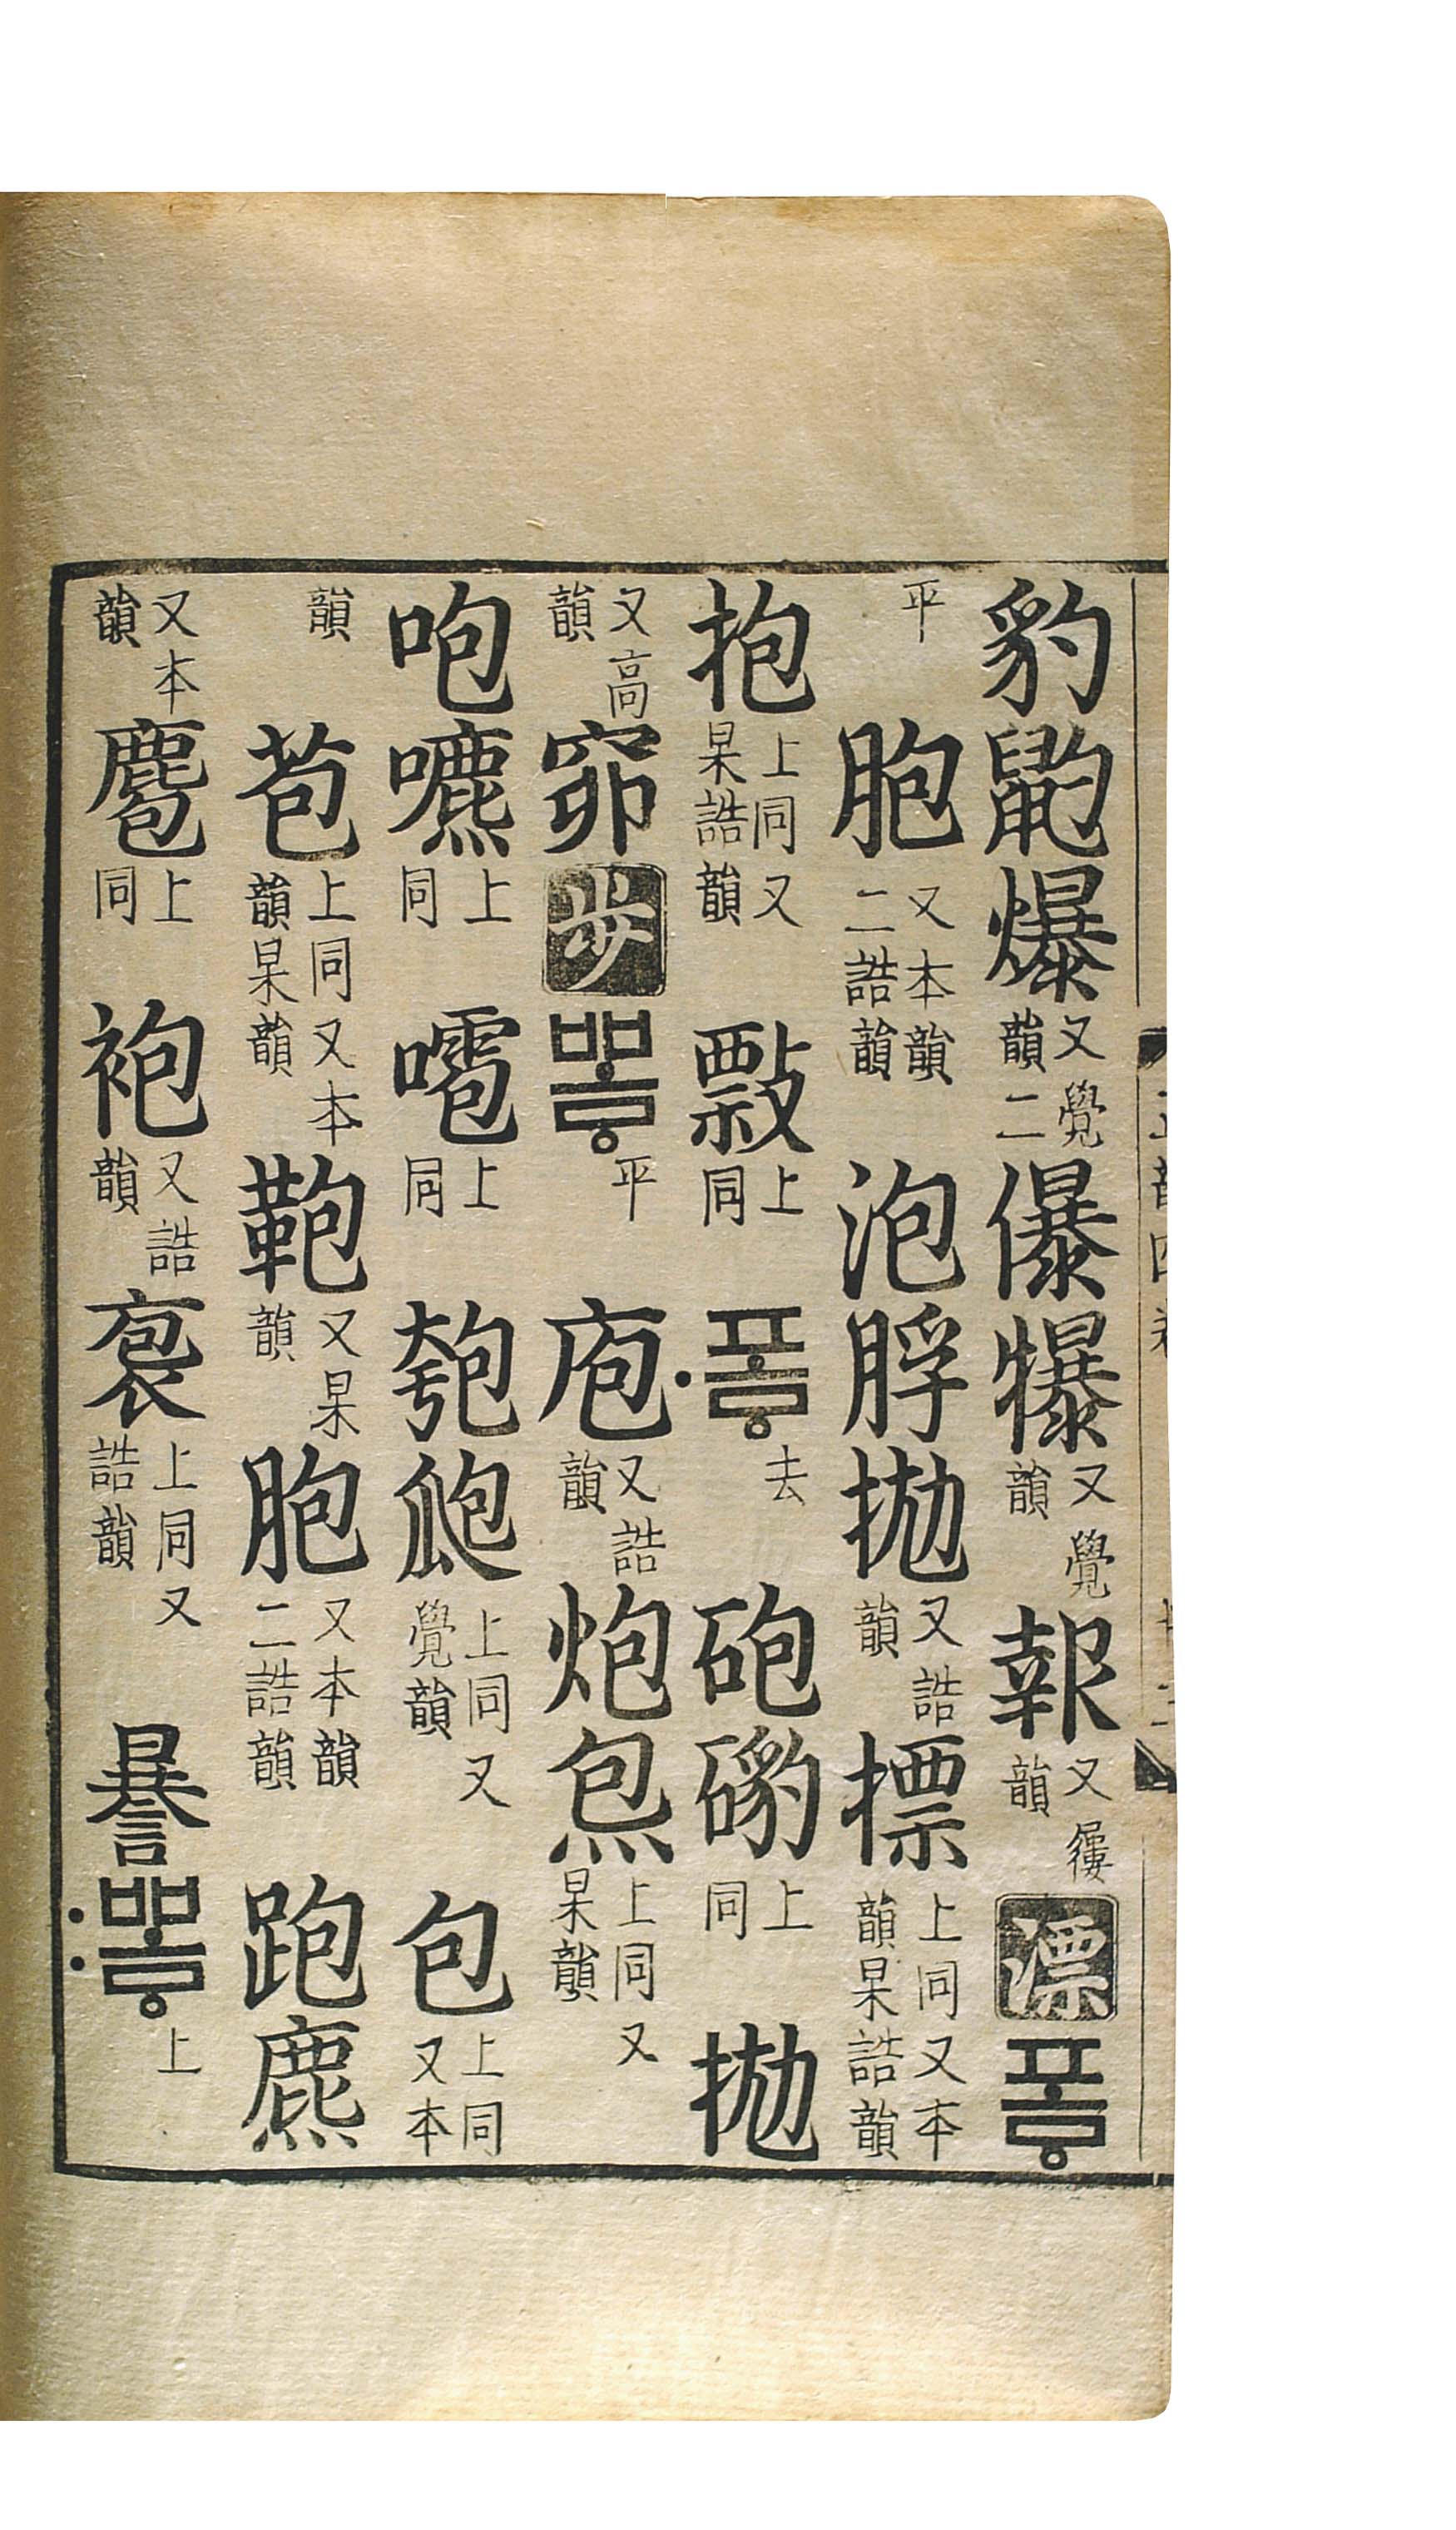 豹䶂爆又覺韻二儤犦又覺韻報又屨韻漂포ᇢ
平胞又本韻二誥韻泡脬拋又誥韻摽上同又本韻杲誥韻
抱上同又杲誥韻上同〮포ᇢ去砲上同拋
又高韻窌步뽀ᇢ平庖又誥韻炮炰上同又杲韻
咆上同上同匏瓟上同又覺韻包上同又本
韻苞上同又本韻杲韻鞄又杲韻胞又本韻二誥韻跑麃
又本韻麅上同袍又誥韻袌上同又誥韻謈〯뽀ᇢ上